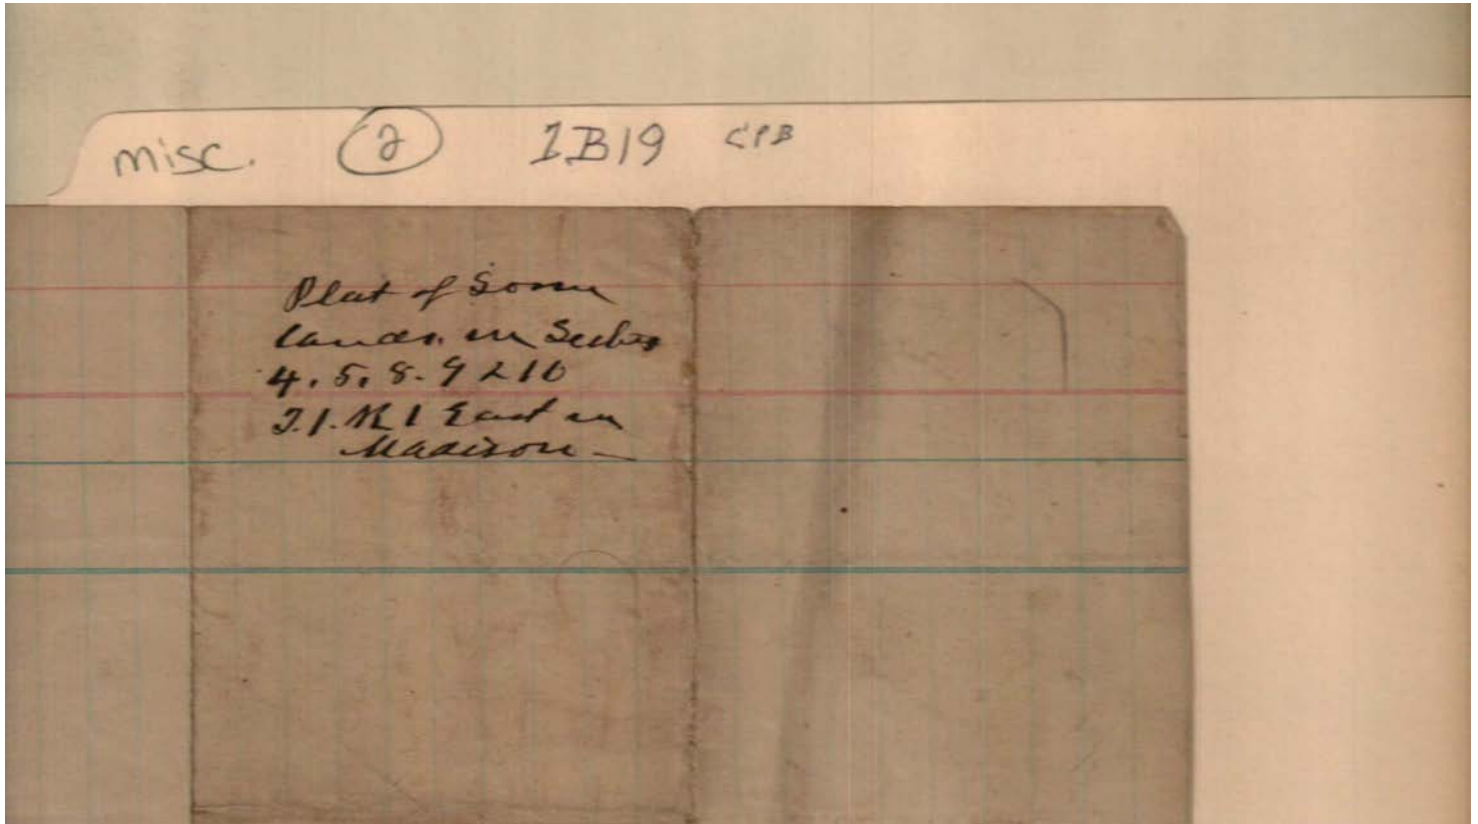 misc. 2 1B19 CPB
Plat of Some
lands. in Sectns
4. 5. 8. 9 & 10
T. 1. R 1 East in
Madison —